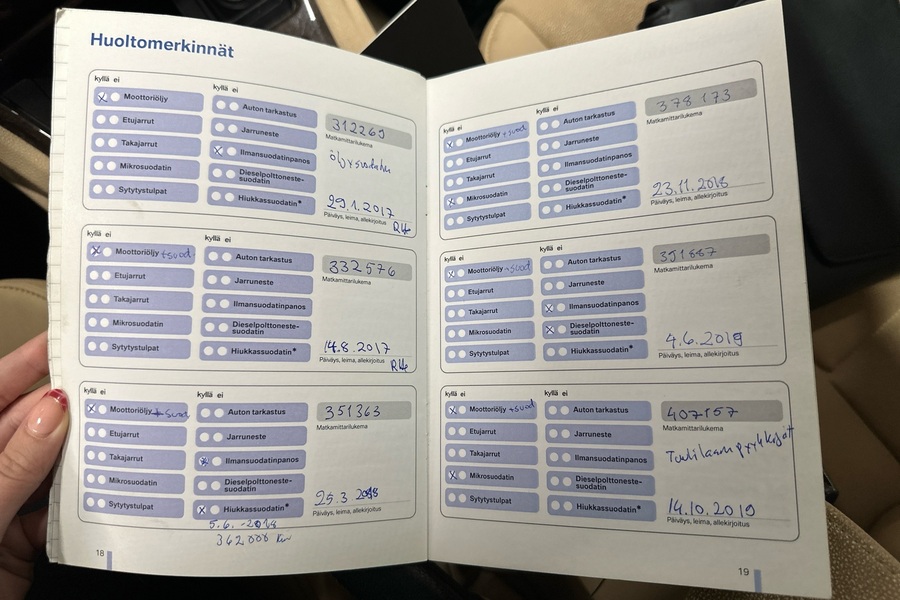 Huoltomerkinnät
kyllä ei
kyllä ei
X Moottoriöljy
Etujarrut
Takajarrut
Mikrosuodatin
Sytytystulpat
Auton tarkastus
Jarruneste
X Ilmansuodatinpanos
Dieselpolttoneste-
suodatin
Hiukkassuodatin*
312269
Matkamittarilukema
29.1.2017
Päiväys, leima, allekirjoitus
kyllä ei
kyllä ei
X Moottoriöljy +suod
Etujarrut
Takajarrut
Mikrosuodatin
Sytytystulpat
Auton tarkastus
Jarruneste
Ilmansuodatinpanos
Dieselpolttoneste-
suodatin
Hiukkassuodatin*
332576
Matkamittarilukema
14.8.2017
Päiväys, leima, allekirjoitus
kyllä ei
kyllä ei
X Moottoriöljy + suod
Etujarrut
Takajarrut
Mikrosuodatin
Sytytystulpat
Auton tarkastus
Jarruneste
X Ilmansuodatinpanos
Dieselpolttoneste-
suodatin
X Hiukkassuodatin*
5.6.-2018
362000 km
351363
Matkamittarilukema
25.3 2018
Päiväys, leima, allekirjoitus
18
kyllä ei
kyllä ei
X Moottoriöljy +suod
Etujarrut
Takajarrut
X Mikrosuodatin
Sytytystulpat
Auton tarkastus
Jarruneste
Ilmansuodatinpanos
Dieselpolttoneste-
suodatin
Hiukkassuodatin*
378 173
Matkamittarilukema
23.11.2018
Päiväys, leima, allekirjoitus
kyllä ei
kyllä ei
X Moottoriöljy +suod
Etujarrut
Takajarrut
Mikrosuodatin
Sytytystulpat
Auton tarkastus
Jarruneste
X Ilmansuodatinpanos
X Dieselpolttoneste-
suodatin
Hiukkassuodatin*
Matkamittarilukema
4.6.2019
Päiväys, leima, allekirjoitus
kyllä ei
kyllä ei
X Moottoriöljy +suod
Etujarrut
Takajarrut
X Mikrosuodatin
Sytytystulpat
Auton tarkastus
Jarruneste
Ilmansuodatinpanos
Dieselpolttoneste-
suodatin
Hiukkassuodatin*
407157
Matkamittarilukema
Tuulilasinpyyhkijät
14.10.2019
Päiväys, leima, allekirjoitus
19